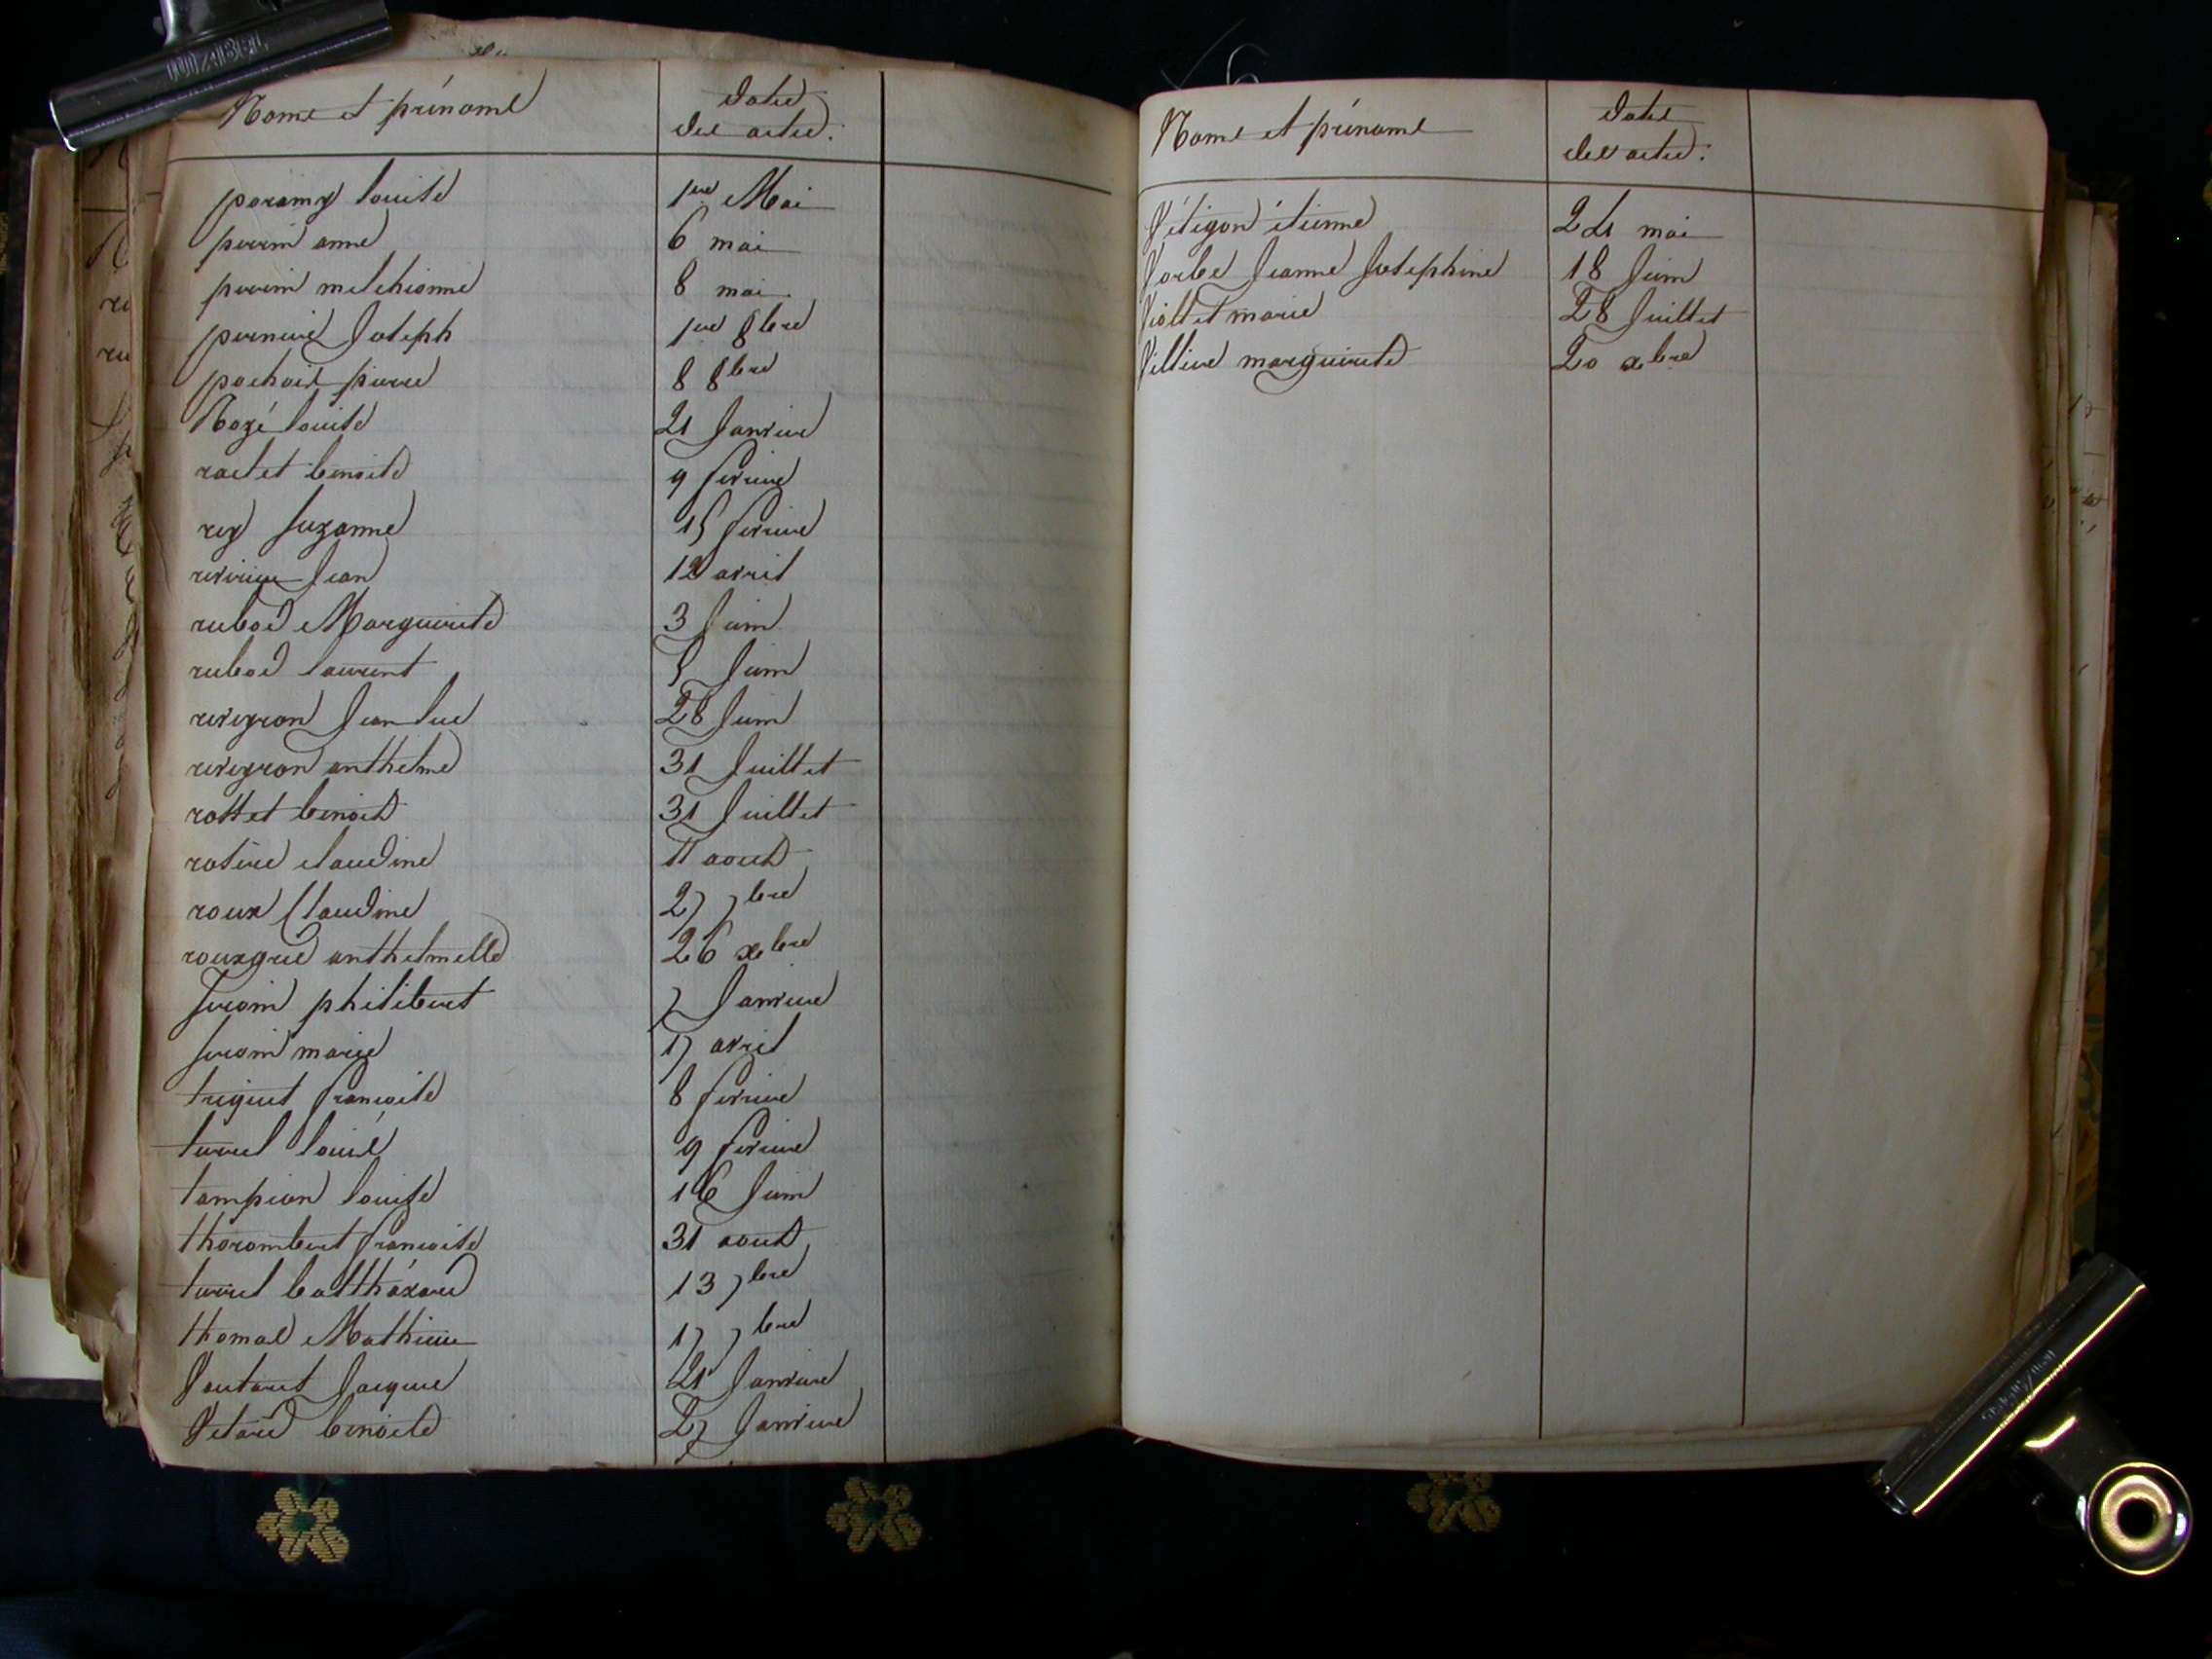 Noms et prénoms
dates
des actes.
paramy louise 1er Mai
perrin anne 6 mai
perrin melchionne 8 mai
pernier Joseph 1er 8bre
pochois pierre 8 8bre
Rozé louise 21 Janvier
raclet benoite 9 fevrier
rey Suzanne 15 fevrier
revirieu Jean 12 avril
rubod Marguerite 3 Juin
rubod laurent 5 Juin
reveyron Jean luc 28 Juin
reveyron anthelme 31 Juillet
rottet benoit 31 Juillet
claudine 11 aout
roux Claudine 27 7bre
anthelmette 26 xbre
Seroin philibert 7 Janvier
Seroin marie 17 avril
triquet francoise 8 fevrier
turrel louis 9 fevrier
tampion louise 16 Juin
thorombert francoise 31 aout
turrel balthazard 13 7bre
thomas Mathieu 17 7bre
Vautaret Jacques 21 Janvier
Vetard benoite 27 Janvier
Noms et prénoms
dates
des actes.
Vétigon étienne 24 mai
Jeanne Josephine 18 Juin
Viollet marie 28 Juillet
Villier marguerite 20 xbre